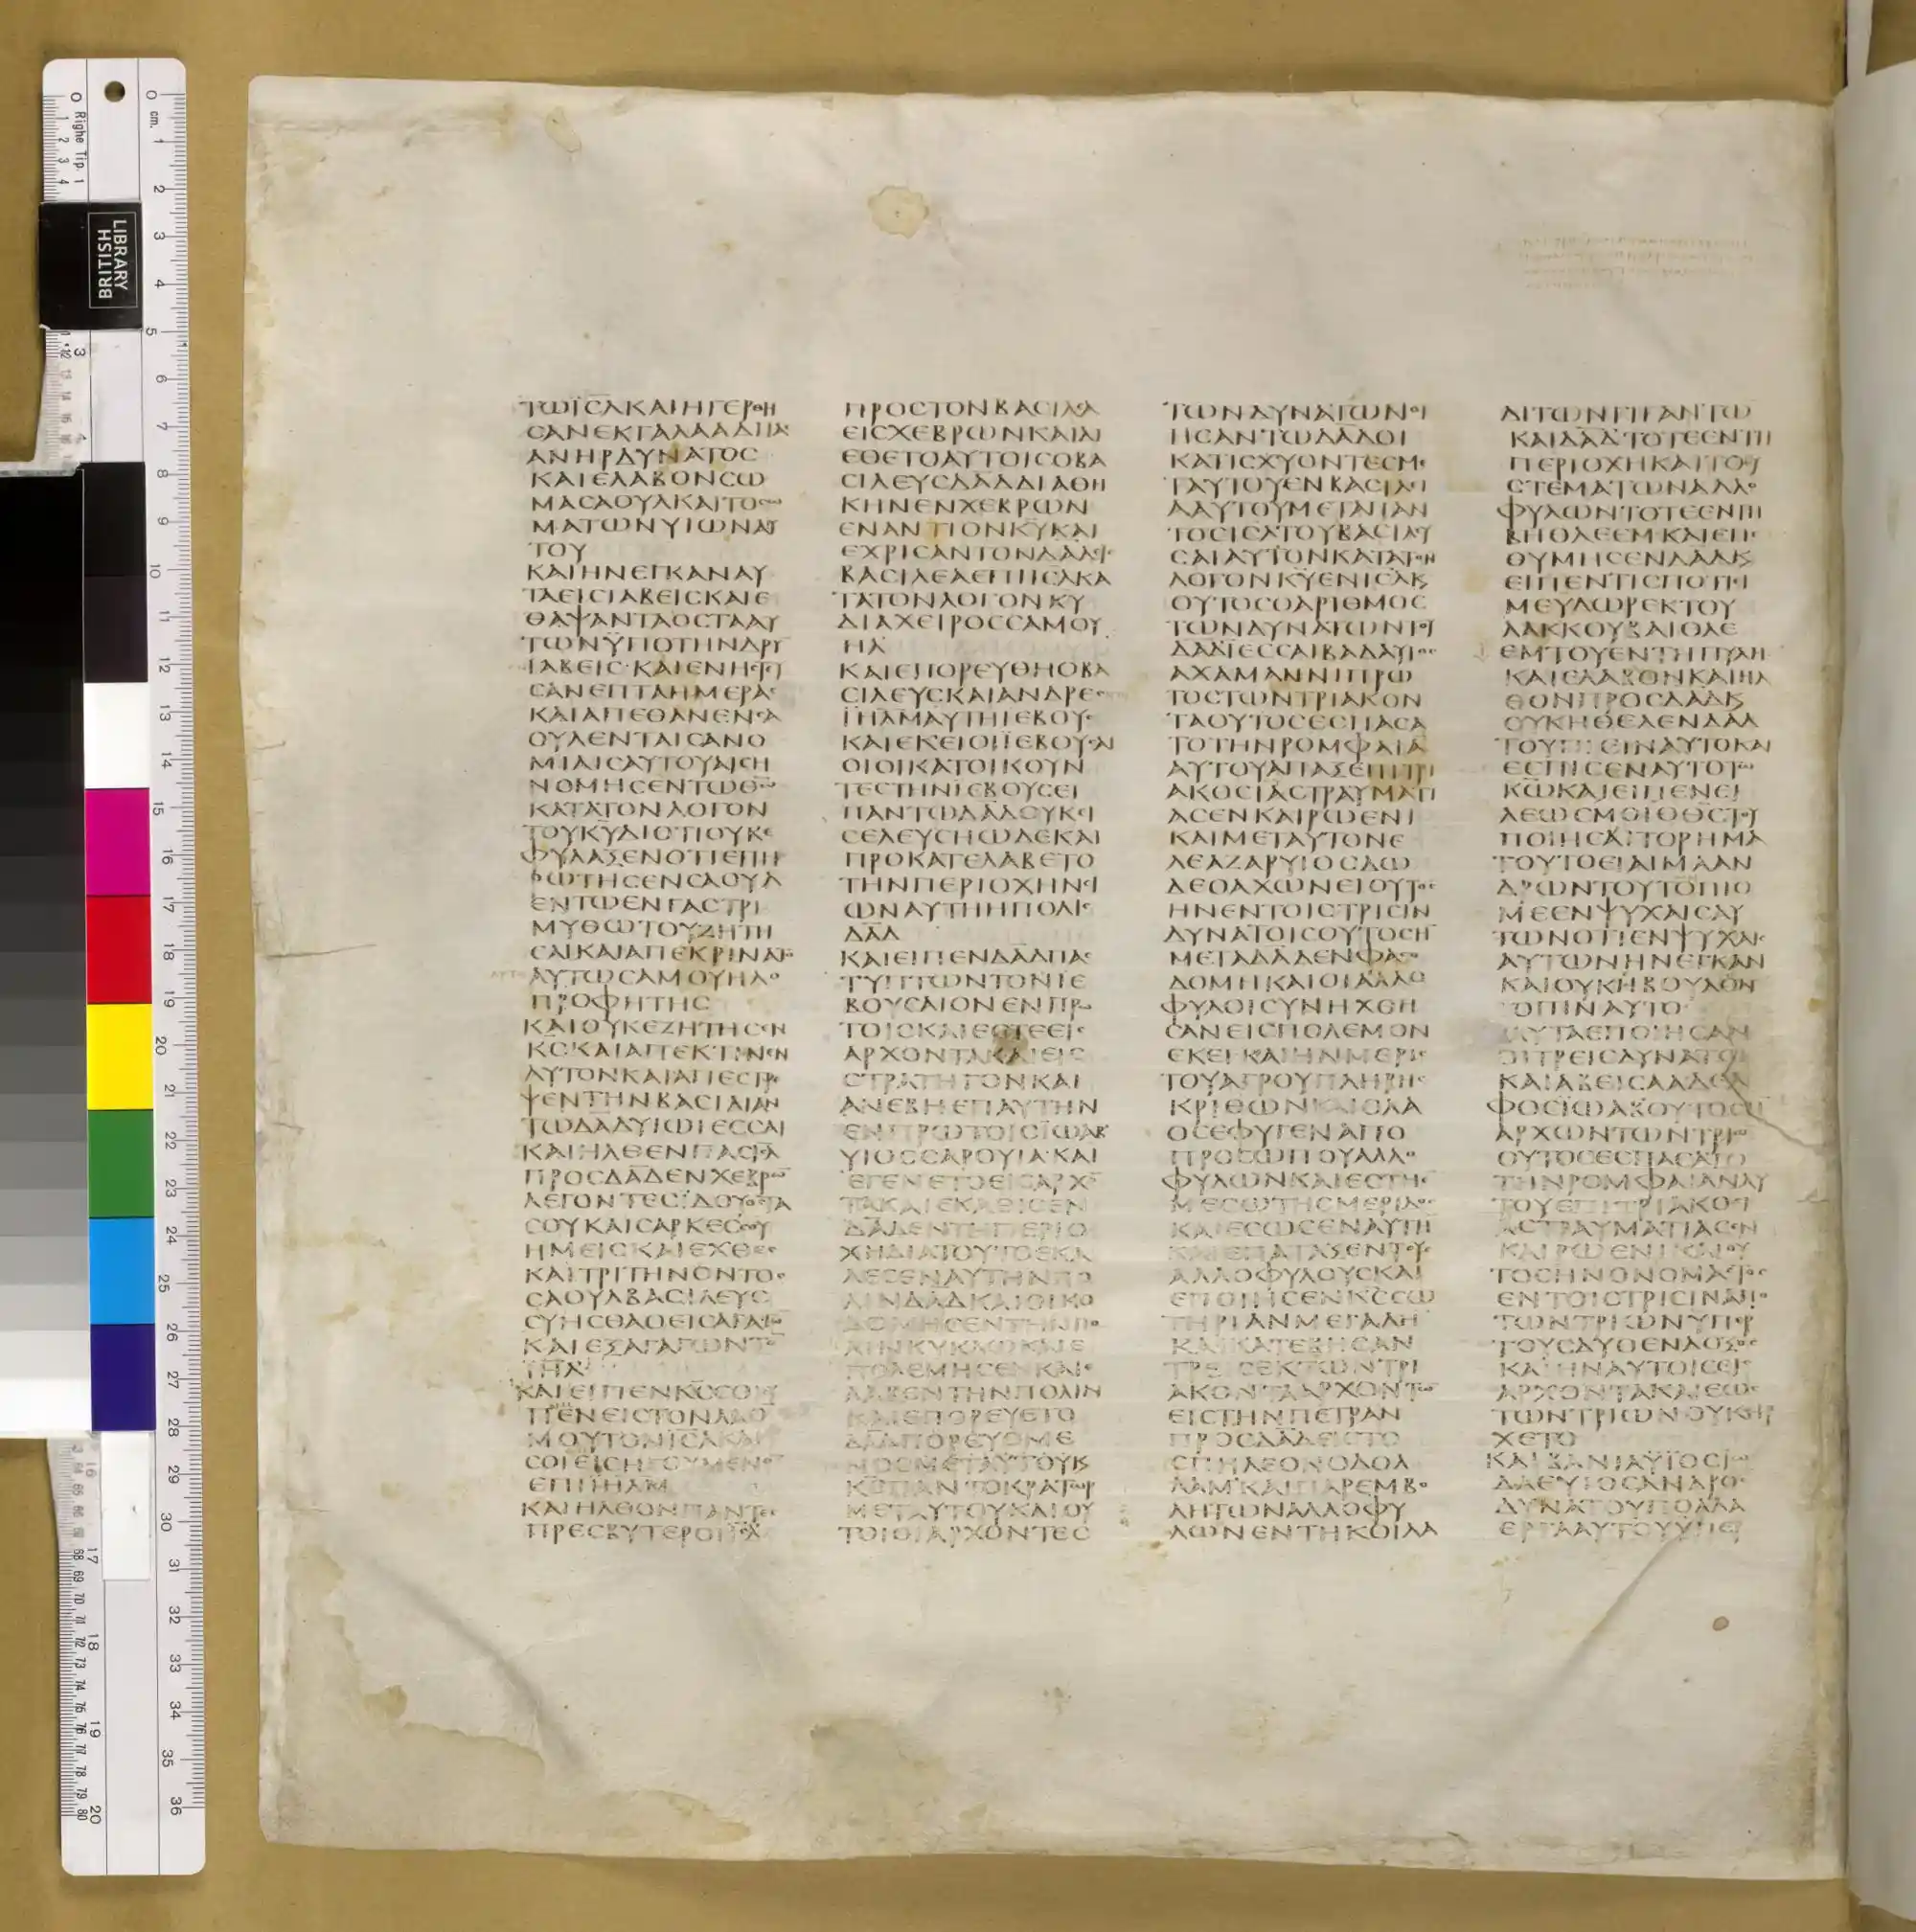 ΤΩΙ̅Ϲ̅Λ̅ΚΑΙΗΓΕΡΘΗ
ϹΑΝΕΚΓΑΛΑΑΔΠΑϹ
ΑΝΗΡΔΥΝΑΤΟϹ
ΚΑΙΕΛΑΒΟΝϹΩ
ΜΑϹΑΟΥΛΚΑΙΤΟϹΩ
ΜΑΤΩΝΥΙΩΝΑΥ
ΤΟΥ
ΚΑΙΗΝΕΓΚΑΝΑΥ
ΤΑΕΙϹΙΑΒΕΙϹΚΑΙΕ
ΘΑΨΑΝΤΑΟϹΤΑΑΥ
ΤΩΝΫΠΟΤΗΝΔΡΥ
ΙΑΒΕΙϹ·ΚΑΙΕΝΗϹΤΕΥ
ϹΑΝΕΠΤΑΗΜΕΡΑϹ
ΚΑΙΑΠΕΘΑΝΕΝϹΑ
ΟΥΛΕΝΤΑΙϹΑΝΟ
ΜΙΑΙϹΑΥΤΟΥΑΙϹΗ
ΝΟΜΗϹΕΝΤΩΘ̅Ω̅
ΚΑΤΑΤΟΝΛΟΓΟΝ
ΤΟΥΚ̅Υ̅ΔΙΟΤΙΟΥΚΕ
ΦΥΛΑΞΕΝΟΤΙΕΠΗ
ΡΩΤΗϹΕΝϹΑΟΥΛ
ΕΝΤΩΕΝΓΑϹΤΡΙ
ΜΥΘΩΤΟΥΖΗΤΗ
ϹΑΙΚΑΙΑΠΕΚΡΙΝΑΤΟ
ΑΥΤΩϹΑΜΟΥΗΛΟ
ΠΡΟΦΗΤΗϹ
ΚΑΙΟΥΚΕΖΗΤΗϹΕΝ
Κ̅Ϲ̅ΚΑΙΑΠΕΚΤΙΝΕΝ
ΑΥΤΟΝΚΑΙΑΠΕϹΤΡΕ
ΨΕΝΤΗΝΒΑϹΙΛΙΑΝ
ΤΩΔ̅Α̅Δ̅ΥΙΩΙΕϹϹΑΙ
ΚΑΙΗΛΘΕΝΠΑϹΙ̅Η̅Λ̅
ΠΡΟϹΔ̅Α̅Δ̅ΕΝΧΕΒΡΩ̅
ΛΕΓΟΝΤΕϹΪΔΟΥΟϹΤΑ
ϹΟΥΚΑΙϹΑΡΚΕϹϹΟΥ
ΗΜΕΙϹΚΑΙΕΧΘΕϹ
ΚΑΙΤΡΙΤΗΝΟΝΤΟϹ
ϹΑΟΥΛΒΑϹΙΛΕΥϹ
ϹΥΗϹΘΑΟΕΙϹΑΓΑΓΩ̅
ΚΑΙΕΞΑΓΑΓΩΝΤΟ̅
Ι̅Η̅Λ̅
ΚΑΙΕΙΠΕΝΚ̅Ϲ̅ϹΟΙϹΥ
ΠΕΝΕΙϹΤΟΝΛΑΟ̅
ΜΟΥΤΟΝΙ̅Ϲ̅Λ̅ΚΑΙ
ϹΟΙΕΙϹΗΓΟΥΜΕΝΟ̅
ΕΠΙΙ̅Η̅Λ̅Μ
ΚΑΙΗΛΘΟΝΠΑΝΤΕϹ
ΠΡΕϹΒΥΤΕΡΟΙΙ̅Η̅Λ̅
ΠΡΟϹΤΟΝΒΑϹΙΛΕΑ
ΕΙϹΧΕΒΡΩΝΚΑΙΔΙ
ΕΘΕΤΟΑΥΤΟΙϹΟΒΑ
ϹΙΛΕΥϹΔ̅Α̅Δ̅ΔΙΑΘΗ
ΚΗΝΕΝΧΕΒΡΩΝ
ΕΝΑΝΤΙΟΝΚ̅Υ̅ΚΑΙ
ΕΧΡΙϹΑΝΤΟΝΔ̅Α̅Δ̅ΕΙϹ
ΒΑϹΙΛΕΑΕΠΙΙ̅Ϲ̅Λ̅ΚΑ
ΤΑΤΟΝΛΟΓΟΝΚ̅Υ̅
ΔΙΑΧΕΙΡΟϹϹΑΜΟΥ
ΗΛ
ΚΑΙΕΠΟΡΕΥΘΗΟΒΑ
ϹΙΛΕΥϹΚΑΙΑΝΔΡΕϹ
Ι̅Η̅Λ̅ΜΑΥΤΗΙΕΒΟΥϹ
ΚΑΙΕΚΕΙΟΙΪΕΒΟΥϹΑΙ
ΟΙΟΙΚΑΤΟΙΚΟΥΝ
ΤΕϹΤΗΝΙΕΒΟΥϹΕΙ
ΠΑΝΤΩΔ̅Α̅Δ̅ΟΥΚΕΙ
ϹΕΛΕΥϹΗΩΔΕΚΑΙ
ΠΡΟΚΑΤΕΛΑΒΕΤΟ
ΤΗΝΠΕΡΙΟΧΗΝϹΙ
ΩΝΑΥΤΗΗΠΟΛΙϹ
Δ̅Α̅Δ̅
ΚΑΙΕΙΠΕΝΔ̅Α̅Δ̅ΠΑϹ
ΤΥΠΤΩΝΤΟΝΙΕ
ΒΟΥϹΑΙΟΝΕΝΠΡΩ
ΤΟΙϹΚΑΙΕϹΤΕΕΙϹ
ΑΡΧΟΝΤΑΚΑΙΕΙϹ
ϹΤΡΑΤΗΓΟΝΚΑΙ
ΑΝΕΒΗΕΠΑΥΤΗΝ
ΕΝΠΡΩΤΟΙϹΪΩΑΒ
ΥΙΟϹϹΑΡΟΥΙΑΚΑΙ
ΕΓΕΝΕΤΟΕΙϹΑΡΧΟ̅
ΤΑΚΑΙΕΚΑΘΙϹΕΝ
Δ̅Α̅Δ̅ΕΝΤΗΠΕΡΙΟ
ΧΗΔΙΑΤΟΥΤΟΕΚΑ
ΛΕϹΕΝΑΥΤΗΝΠΟ
ΛΙΝΔ̅Α̅Δ̅ΚΑΙΟΙΚΟ
ΔΟΜΗϹΕΝΤΗΝΠΟ
ΛΙΝΚΥΚΛΩΚΑΙΕ
ΠΟΛΕΜΗϹΕΝΚΑΙΕ
ΛΑΒΕΝΤΗΝΠΟΛΙΝ
ΚΑΙΕΠΟΡΕΥΕΤΟ
Δ̅Α̅Δ̅ΠΟΡΕΥΟΜΕ
ΝΟϹΜΕΤΑΥΤΟΥΚ
Κ̅Ϲ̅ΠΑΝΤΟΚΡΑΤΩΡ
ΜΕΤΑΥΤΟΥΚΑΙΟΥ
ΤΟΙΟΙΑΡΧΟΝΤΕϹ
ΤΩΝΔΥΝΑΤΩΝΟΙ
ΗϹΑΝΤΩΔ̅Α̅Δ̅ΟΙ
ΚΑΤΙϹΧΥΟΝΤΕϹΜΕ
ΤΑΥΤΟΥΕΝΒΑϹΙΛΕΙ
ΑΑΥΤΟΥΜΕΤΑΠΑΝ
ΤΟϹΙ̅Ϲ̅Λ̅ΤΟΥΒΑϹΙΛΕΥ
ϹΑΙΑΥΤΟΝΚΑΤΑΤΟΝ
ΛΟΓΟΝΚ̅Υ̅ΕΝΙ̅Ϲ̅Λ̅Κ
ΟΥΤΟϹΟΑΡΙΘΜΟϹ
ΤΩΝΔΥΝΑΤΩΝΤΟΥ
Δ̅Α̅Δ̅ΙΕϹϹΑΙΒΑΔΑΥΙΟϹ
ΑΧΑΜΑΝΝΙΠΡΩ
ΤΟϹΤΩΝΤΡΙΑΚΟΝ
ΤΑΟΥΤΟϹΕϹΠΑϹΑ
ΤΟΤΗΝΡΟΜΦΑΙΑ̅
ΑΥΤΟΥΑΠΑΞΕΠΙΤΡΙ
ΑΚΟϹΙΑϹΤΡΑΥΜΑΤΙ
ΑϹΕΝΚΑΙΡΩΕΝΙ
ΚΑΙΜΕΤΑΥΤΟΝΕ
ΛΕΑΖΑΡΥΙΟϹΔΩ
ΔΕΟΑΧΩΝΕΙΟΥΤΟϹ
ΗΝΕΝΤΟΙϹΤΡΙϹΙΝ
ΔΥΝΑΤΟΙϹΟΥΤΟϹΗ̅
ΜΕΤΑΔ̅Α̅Δ̅ΕΝΦΑϹΟ
ΔΟΜΗΚΑΙΟΙΑΛΛΟ
ΦΥΛΟΙϹΥΝΗΧΘΗ
ϹΑΝΕΙϹΠΟΛΕΜΟΝ
ΕΚΕΙΚΑΙΗΝΜΕΡΙϹ
ΤΟΥΑΓΡΟΥΠΛΗΡΗϹ
ΚΡΙΘΩΝΚΑΙΟΛΑ
ΟϹΕΦΥΓΕΝΑΠΟ
ΠΡΟϹΩΠΟΥΑΛΛΟ
ΦΥΛΩΝΚΑΙΕϹΤΗΕ
ΜΕϹΩΤΗϹΜΕΡΙΔΟϹ
ΚΑΙΕϹΩϹΕΝΑΥΤΗ̅
ΚΑΙΕΠΑΤΑΞΕΝΤΟΥϹ
ΑΛΛΟΦΥΛΟΥϹΚΑΙ
ΕΠΟΙΗϹΕΝΚ̅Ϲ̅ϹΩ
ΤΗΡΙΑΝΜΕΓΑΛΗ
ΚΑΙΚΑΤΕΒΗϹΑΝ
ΤΡΕΙϹΕΚΤΩΝΤΡΙ
ΑΚΟΝΤΑΑΡΧΟΝΤΩ̅
ΕΙϹΤΗΝΠΕΤΡΑΝ
ΠΡΟϹΔ̅Α̅Δ̅ΕΙϹΤΟ
ϹΠΗΛΕΟΝΟΔΟΛ
ΛΑΜΚΑΙΠΑΡΕΜΒΟ
ΛΗΤΩΝΑΛΛΟΦΥ
ΛΩΝΕΝΤΗΚΟΙΛΑ
ΔΙΤΩΝΓΙΓΑΝΤΩ̅
ΚΑΙΔ̅Α̅Δ̅ΤΟΤΕΕΝΤΗ
ΠΕΡΙΟΧΗΚΑΙΤΟϹΥ
ϹΤΕΜΑΤΩΝΑΛΛΟ
ΦΥΛΩΝΤΟΤΕΕΝΠΗ
ΒΗΟΛΕΕΜΚΑΙΕΠΕ
ΘΥΜΗϹΕΝΔ̅Α̅Δ̅Κ
ΕΙΠΕΝΤΙϹΠΟΤΙΕΙ
ΜΕΥΔΩΡΕΚΤΟΥ
ΛΑΚΚΟΥΒΑΙΘΛΕ
ΕΜΤΟΥΕΝΤΗΠΥΛΗ
ΚΑΙΕΛΑΒΟΝΚΑΙΗΛ
ΘΟΝΠΡΟϹΔ̅Α̅Δ̅Κ
ΟΥΚΗΘΕΛΕΝΔ̅Α̅Δ̅
ΤΟΥΠΙΕΙΝΑΥΤΟΚΑΙ
ΕϹΠΙϹΕΝΑΥΤΟΤΩ
Κ̅Ω̅ΚΑΙΕΙΠΕΝΕΙ
ΛΕΩϹΜΟΙΟΘ̅Ϲ̅ΤΟΥ
ΠΟΙΗϹΑΙΤΟΡΗΜΑ
ΤΟΥΤΟΕΙΑΙΜΑΑΝ
ΔΡΩΝΤΟΥΤΟΠΙΟ
ΜΕΕΝΨΥΧΑΙϹΑΥ
ΤΩΝΟΤΙΕΝΨΥΧΑΙϹ
ΑΥΤΩΝΗΝΕΓΚΑΝ
ΚΑΙΟΥΚΗΒΟΥΛΟΝ
ΤΟΠΙΝΑΥΤΟ
ΤΑΥΤΑΕΠΟΙΗϹΑΝ
ΟΙΤΡΕΙϹΔΥΝΑΤΟΙ
ΚΑΙΑΒΕΙϹΑΑΔΕΛ
ΦΟϹΪΩΑΒΟΥΤΟϹΗ̅
ΑΡΧΩΝΤΩΝΤΡΙΩ̅
ΟΥΤΟϹΕϹΠΑϹΑΤΟ
ΤΗΝΡΟΜΦΑΙΑΝΑΥ
ΤΟΥΕΠΙΤΡΙΑΚΟϹΙ
ΑϹΤΡΑΥΜΑΤΙΑϹΕΝ
ΚΑΙΡΩΕΝΙΚΑΙΟΥ
ΤΟϹΗΝΟΝΟΜΑΣΤΟϹ
ΕΝΤΟΙϹΤΡΙϹΙΝΑΠΟ
ΤΩΝΤΡΙΩΝΥΠΕΡ
ΤΟΥϹΔΥΟΕΝΔΟΞΟϹ
ΚΑΙΗΝΑΥΤΟΙϹΕΙϹ
ΑΡΧΟΝΤΑΚΑΙΕΩϹ
ΤΩΝΤΡΙΩΝΟΥΚΗΡ
ΧΕΤΟ
ΚΑΙΒΑΝΙΑΥΪΟϹΙΩ
ΔΑΕΥΙΟϹΑΝΔΡΟϹ
ΔΥΝΑΤΟΥΠΟΛΛΑ
ΕΡΓΑΑΥΤΟΥΥΠΕΡ
BRITISH
LIBRARY